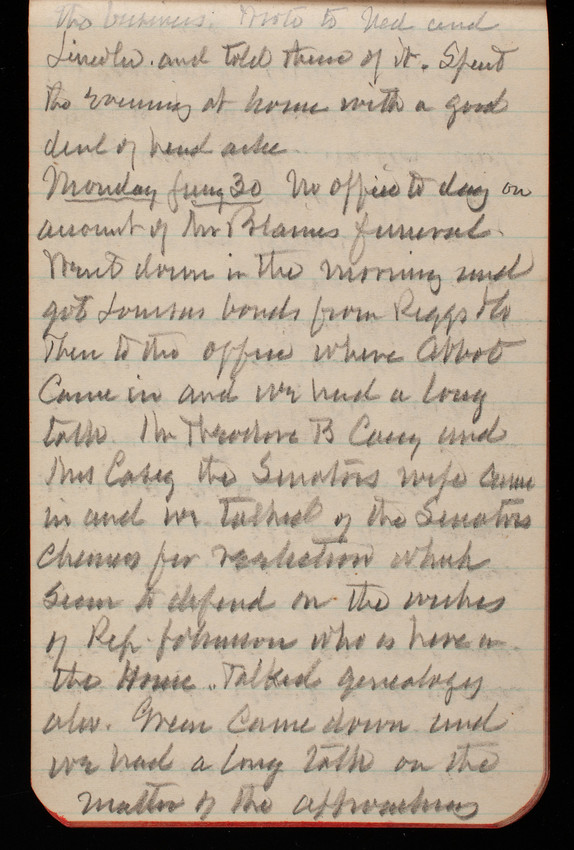 the business. Wrote to Ned and
Lincoln and told them of it. Spent
the evening at home with a good
deal of head ache
Monday Jany 30 No office to day on
account of Mr Blaines funeral.
Went down in the morning and
got Louisas bonds from Riggs & Co
Then to the office where Abbot
Came in and we had a long
talk. Mr Theodore B Casey and
Mrs Casey the Senators wife came
in and we talked of the Senators
chances for reelection which
seem to depend on the wishes
of Rep. Johnson who is here in
the House. Talked genealogy
also. Green came down and
we had a long talk on the
matter of the approaching